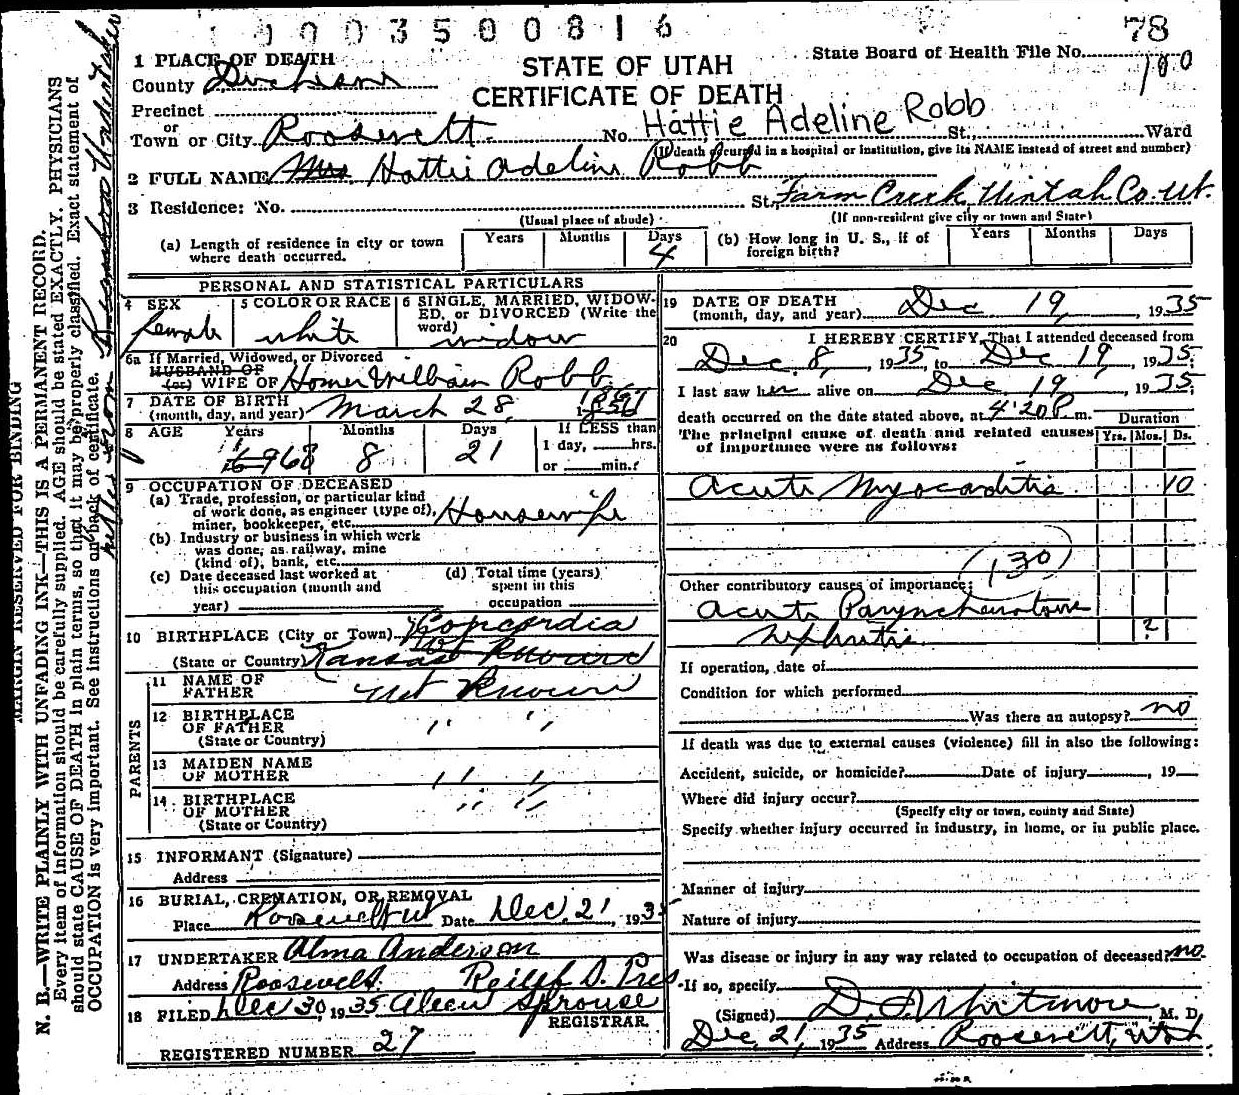 1003500816
78
1 PLACE OF DEATH
STATE OF UTAH
State Board of Health File No.
110
County Duchesne
CERTIFICATE OF DEATH
Precinct
or
Town or City Roosevelt No. Hattie Adeline Robb St., Ward
(If death occurred in a hospital or institution, give its NAME instead of street and number)
2 FULL NAME Mrs Hattie Adeline Robb
3 Residence: No. St., Farm Creek, Uintah Co. Ut.
(Usual place of abode) (If non-resident give city or town and State)
(a) Length of residence in city or town where death occurred. Years Months Days 4
(b) How long in U. S., if of foreign birth? Years Months Days
PERSONAL AND STATISTICAL PARTICULARS
4 SEX female
5 COLOR OR RACE white
6 SINGLE, MARRIED, WIDOWED, or DIVORCED (Write the word) widow
6a If Married, Widowed, or Divorced
HUSBAND OF
(or) WIFE OF Homer William Robb
7 DATE OF BIRTH
(month, day, and year) March 28, 1867
8 AGE Years 68 Months 8 Days 21 If LESS than
1 day, hrs.
or min.
9 OCCUPATION OF DECEASED
(a) Trade, profession, or particular kind
of work done, as engineer (type of),
miner, bookkeeper, etc. Housewife
(b) Industry or business in which work
was done, as railway, mine
(kind of), bank, etc.
(c) Date deceased last worked at
this occupation (month and
year)
(d) Total time (years)
spent in this
occupation
10 BIRTHPLACE (City or Town) Concordia
(State or Country) Kansas Not Known
PARENTS
11 NAME OF
FATHER Not Known
12 BIRTHPLACE
OF FATHER " "
(State or Country)
13 MAIDEN NAME
OF MOTHER " "
14 BIRTHPLACE
OF MOTHER " "
(State or Country)
15 INFORMANT (Signature)
Address
16 BURIAL, CREMATION, OR REMOVAL
Place Roosevelt Ut Date Dec. 21, 1935
17 UNDERTAKER Alma Anderson
Address Roosevelt.
18 FILED Dec 30, 1935 Aleen Sprouse
REGISTRAR.
REGISTERED NUMBER 27
19 DATE OF DEATH
(month, day, and year) Dec 19, 1935
20 I HEREBY CERTIFY, That I attended deceased from
Dec. 8, 1935 to Dec 19, 1935;
I last saw her alive on Dec 19, 1935;
death occurred on the date stated above, at 4:20 P. m.
Duration
The principal cause of death and related causes
of importance were as follows:
Yrs. Mos. Ds.
Acute Myocarditis 10
(130)
Other contributory causes of importance:
Acute Parynchematous
Nephritis ?
If operation, date of
Condition for which performed
Was there an autopsy? no
If death was due to external causes (violence) fill in also the following:
Accident, suicide, or homicide? Date of injury , 19
Where did injury occur?
(Specify city or town, county and State)
Specify whether injury occurred in industry, in home, or in public place.
Manner of injury
Nature of injury
Was disease or injury in any way related to occupation of deceased? no.
If so, specify
(Signed) Whitmore, M. D.
Dec, 21, 1935 Address Roosevelt, Utah.
MARGIN RESERVED FOR BINDING
N. B.—WRITE PLAINLY WITH UNFADING INK—THIS IS A PERMANENT RECORD.
Every item of information should be carefully supplied. AGE should be stated EXACTLY. PHYSICIANS
should state CAUSE OF DEATH in plain terms, so that it may be properly classified. Exact statement of
OCCUPATION is very important. See instructions on back of certificate.